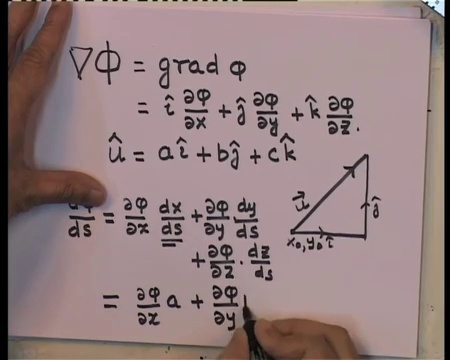 ∇Φ = grad φ
= î ∂Φ/∂x + ĵ ∂Φ/∂y + k̂ ∂Φ/∂z.
û = aî + bĵ + ck̂
dφ/ds = ∂Φ/∂x dx/ds + ∂Φ/∂y dy/ds
+ ∂Φ/∂z · dz/ds
= ∂Φ/∂x a + ∂Φ/∂y
u⃗
ĵ
x₀, y₀ î